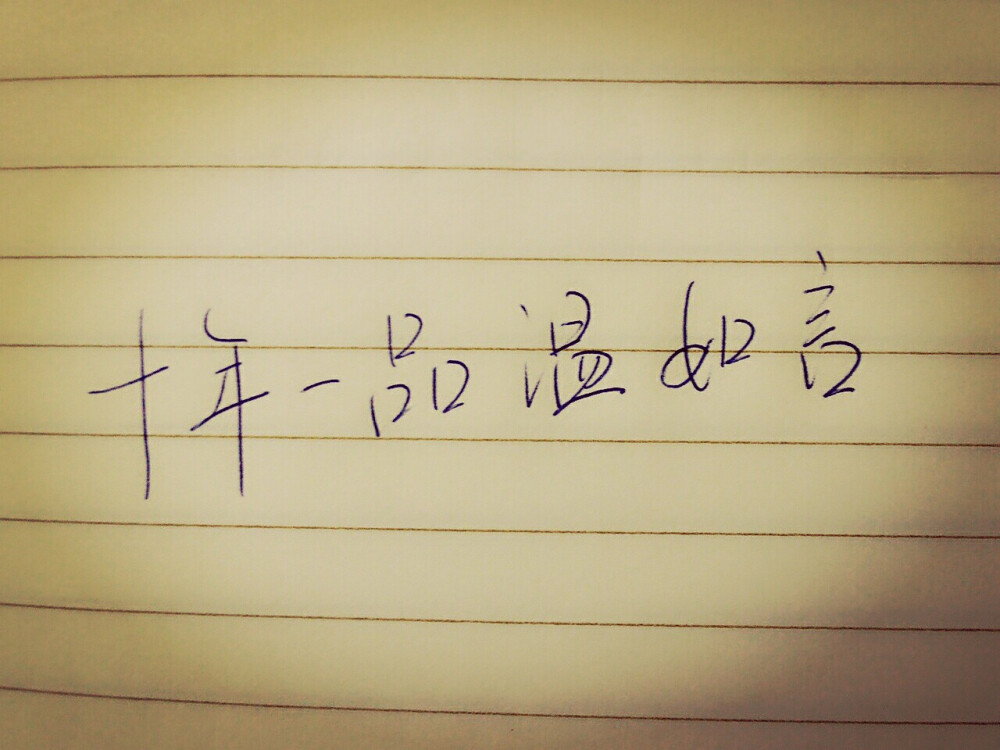 十年一品温如言